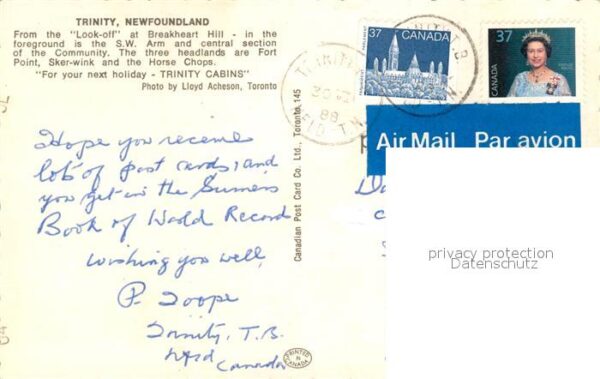 TRINITY, NEWFOUNDLAND
From the "Look-off" at Breakheart Hill - in
the foreground is the S.W. Arm and central section
of the Community. The three headlands are Fort
Point, Sker-wink and the Horse Chops.
"For your next holiday - TRINITY CABINS"
Photo by Lloyd Acheson, Toronto
Hope you receive
lots of post cards, and
you get in the Guiness
Book of World Record
Wishing you well,
P. Toope
Trinity, T.B.
Nfld
Canada
Canadian Post Card Co. Ltd., Toronto 145
PRINTED IN CANADA
37 CANADA
37
CANADA
TRINITY
30
88
NFLD
Air Mail Par avion
privacy protection
Datenschutz